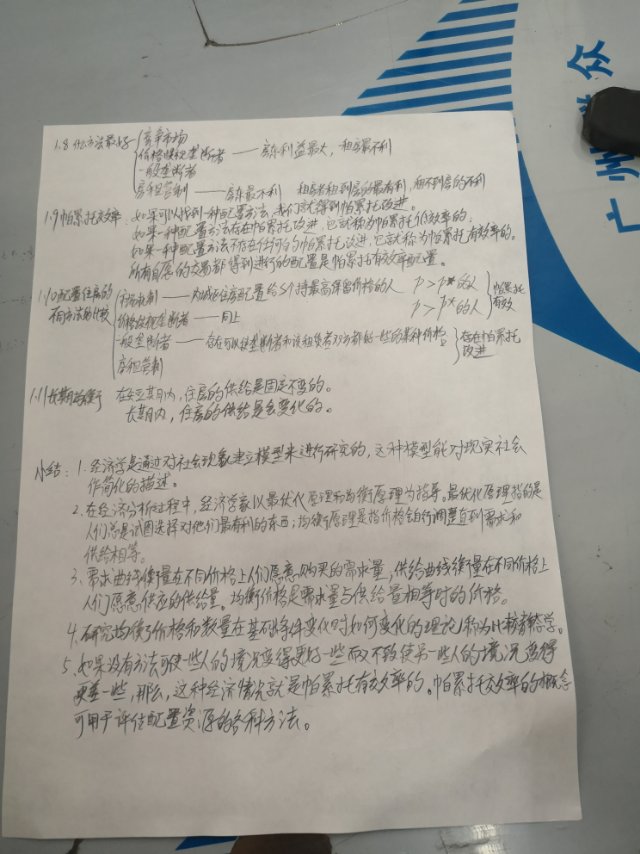 1.8 何方法最好 竞争市场
价格歧视垄断者 —— 房东利益最大，租客最不利
一般垄断者
房租管制 —— 房东最不利 租者租到房的最有利，租不到房的不利
1.9 帕累托效率：如果可以找到一种配置方法，我们就得到帕累托改进。
如果一种配置方法存在帕累托改进，它就称为帕累托低效率的。
如果一种配置方法不存在任何的帕累托改进，它就称为帕累托有效率的。
所有自愿的交易都得到进行的配置是帕累托有效率配置。
1.10 配置住房的 市场机制 —— 内城区住房配置给S个持最高保留价格的人 p > p*的人 帕累托
不同方法的比较 价格歧视垄断者 —— 同上 p > p*的人 有效
一般垄断者 —— 存在可以使垄断者和该租赁者双方都好一些的某种价格。 存在帕累托
房租管制 改进
1.11 长期均衡 在短期内，住房的供给是固定不变的。
长期内，住房的供给是会变化的。
小结：1. 经济学是通过对社会现象建立模型来进行研究的，这种模型能对现实社会
作简化的描述。
2. 在经济分析过程中，经济学家以最优化原理和均衡原理为指导。最优化原理指的是
人们总是试图选择对他们最有利的东西；均衡原理是指价格会自行调整直到需求和
供给相等。
3. 需求曲线衡量在不同价格上人们愿意购买的需求量，供给曲线衡量在不同价格上
人们愿意供应的供给量。均衡价格是需求量与供给量相等时的价格。
4. 研究均衡价格和数量在基础条件变化时如何变化的理论称为比较静态学。
5. 如果没有方法可使一些人的境况变得更好一些而又不致使另一些人的境况变得
更差一些，那么，这种经济情况就是帕累托有效率的。帕累托效率的概念
可用于评估配置资源的各种方法。
广州
众